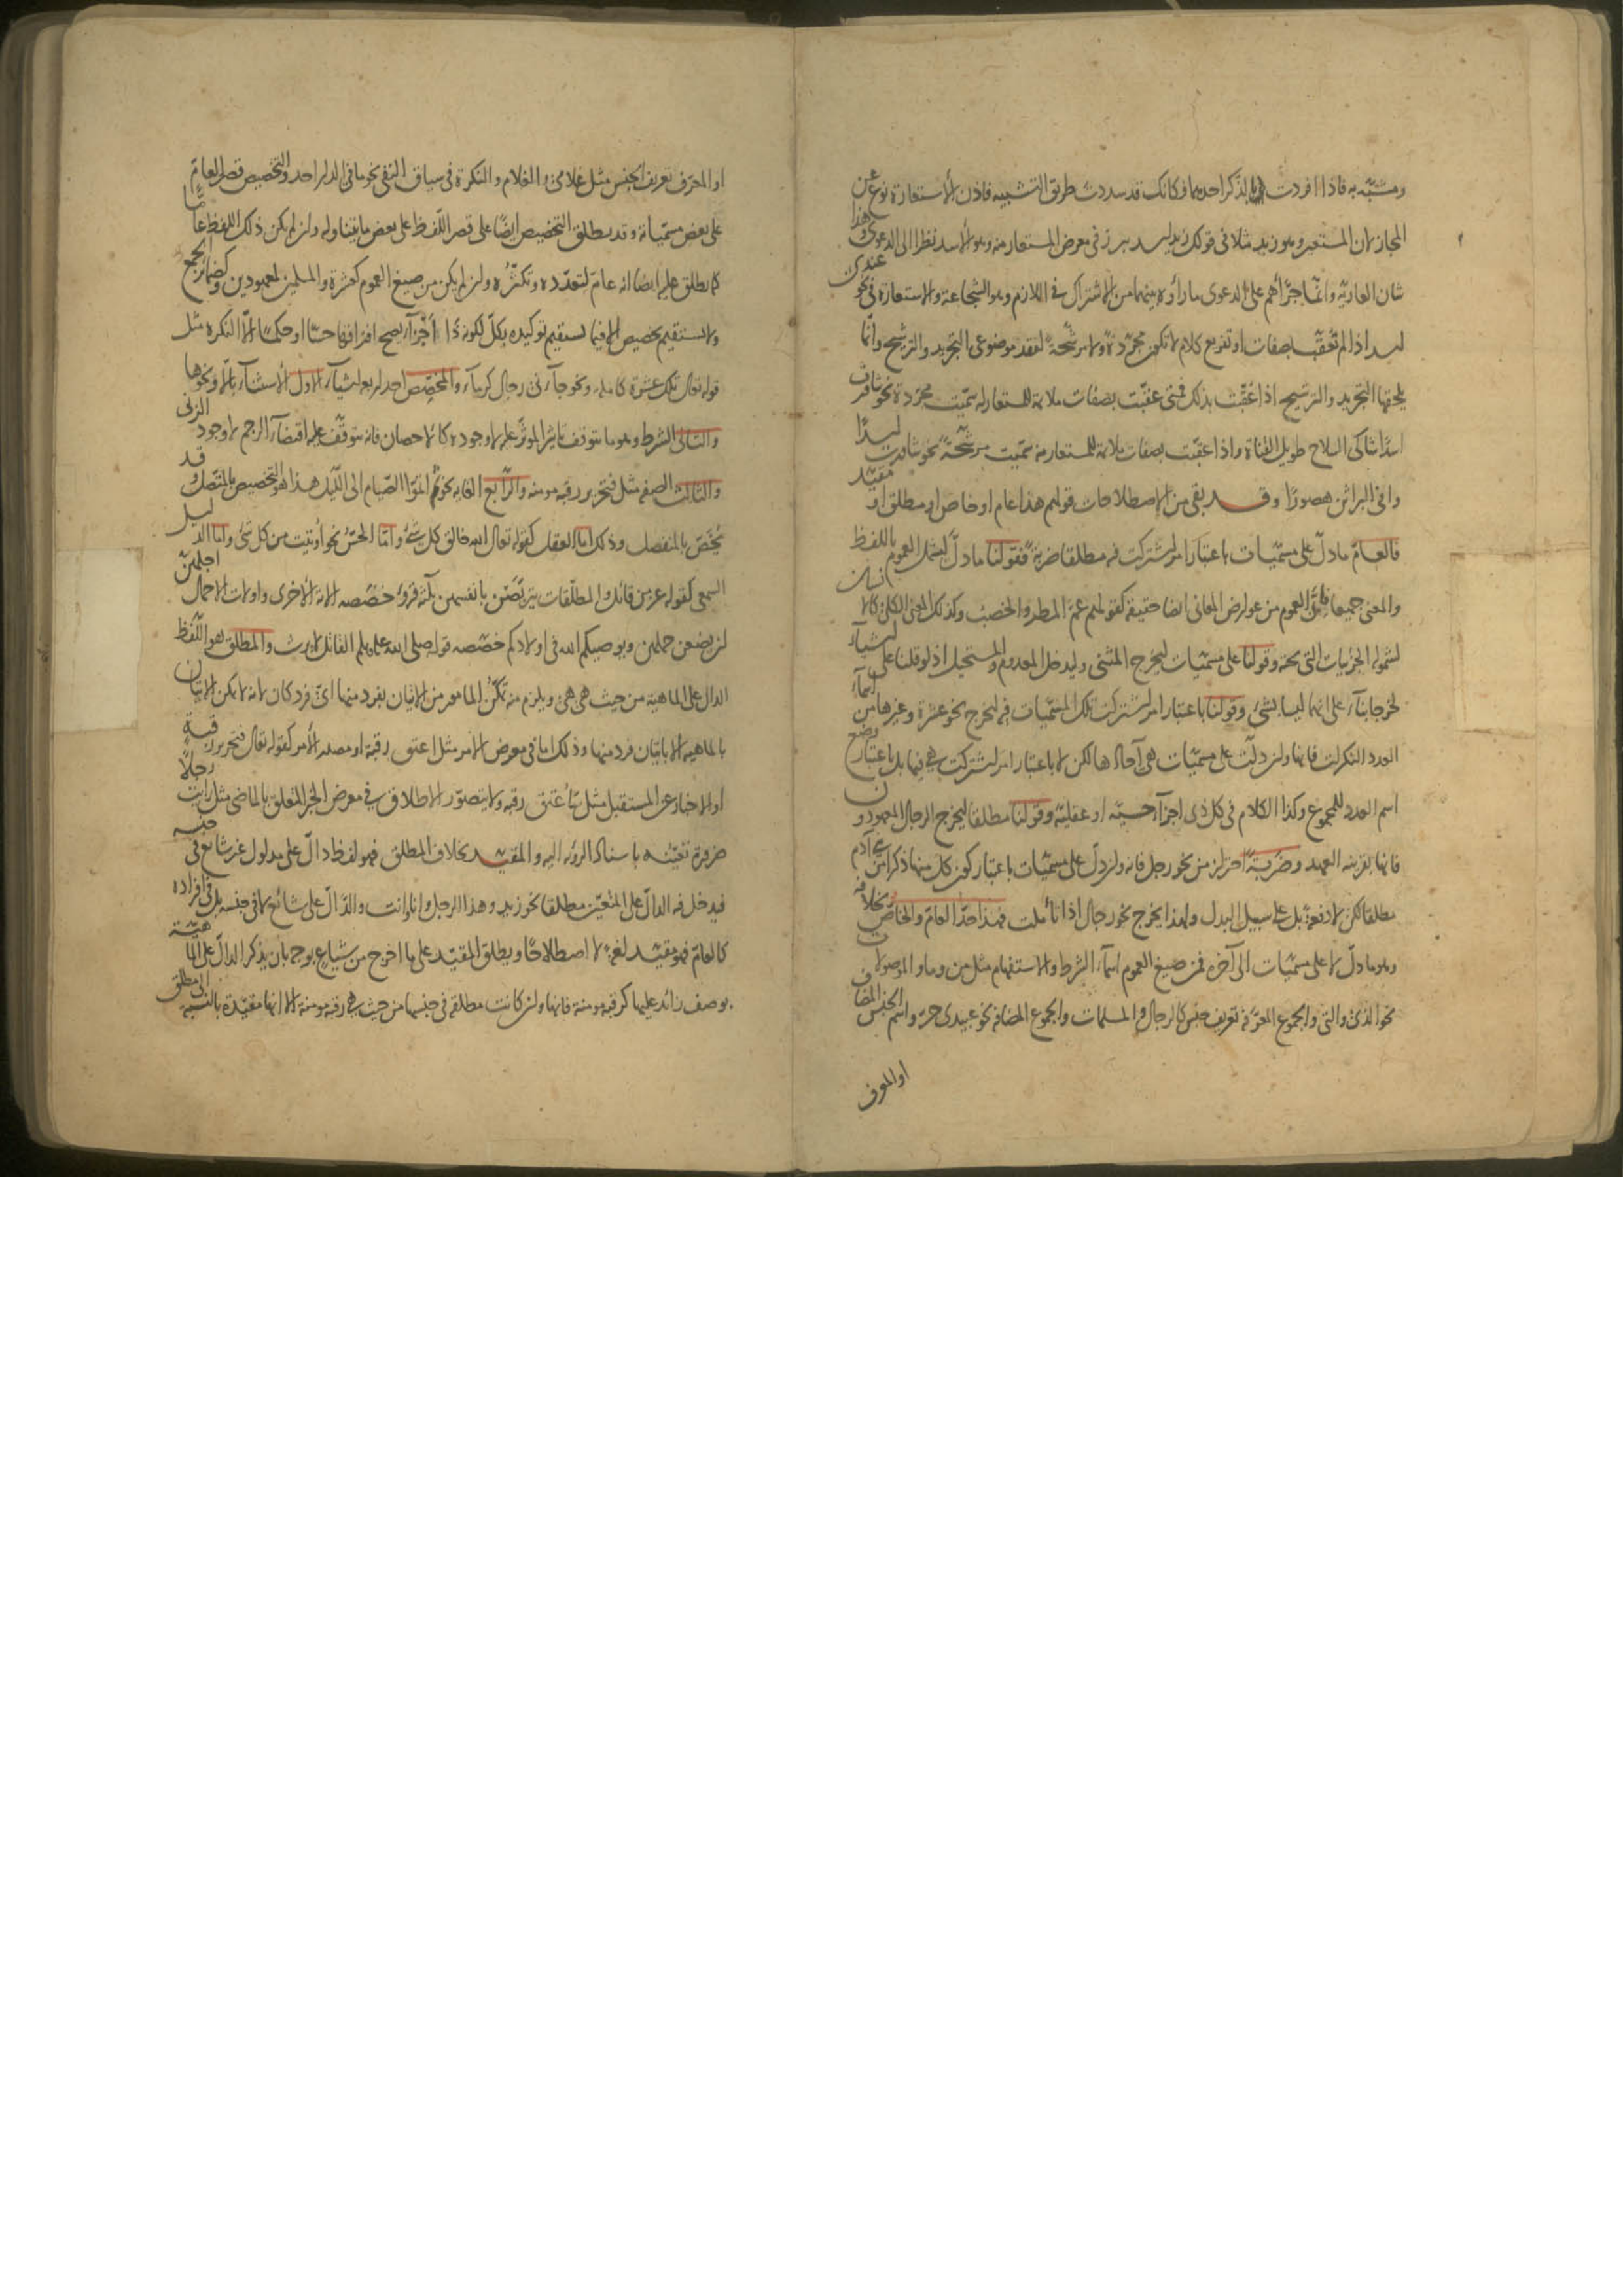 ومشبّه به فاذا افردت بالذكر احدهما فكانك قد سددت طريق التشبيه فاذن الاستعارة نوع من
المجاز لان المستعير وهو زيد مثلا فى قولك زيد اسد برز فى معرض المستعار منه وهو الاسد نظرا الى الدعوى وهذا
شان العارية وانما جرّأهم على الدعوى ما رأوه بينهما من الاشتراك فى اللازم وهو الشجاعة والاستعارة فى نحو عندى
اسد اذا لم تعقّب بصفات او تفريع كلام لا تكون مجرّدة ولا مرشّحة لفقد موضوعى التجريد والترشيح وانّما
يلحقها التجريد والترشيح اذا عقّبت بذلك فمتى عقّبت بصفات ملائمة للمستعار له سمّيت مجرّدة نحو شاورت
اسدًا شاكى السلاح طويل القناة واذا عقّبت بصفات ملائمة للمستعار منه سمّيت مرشّحة نحو شاورت اسدًا
وافى البراثن هصورًا وقد بقى من الاصطلاحات قولهم هذا عام او خاص او مطلق او مقيّد
فالعامّ ما دلّ على مسمّيات باعتبار امر اشتركت فيه مطلقا ضربةً فقولنا ما دلّ ليشمل العموم باللفظ
والمعنى جميعا فانّ العموم من عوارض المعانى ايضا حقيقة كقولهم عمّ المطر والخصب وكذلك المعنى الكلى كالانسان
لشموله الجزئيات التى تحته وقولنا على مسمّيات ليخرج المثنى وليدخل المعدوم والمستحيل اذ لو قلنا على اشياء
لخرجا بناء على انهما ليسا بشئ وقولنا باعتبار امر اشتركت تلك المسمّيات فيه ليخرج نحو عشرة وغيرها من اسماء
العدد النكرات فانها وان دلّت على مسمّيات هى آحادها لكن لا باعتبار امر اشتركت هى فيها بل باعتبار وضع
اسم العدد للمجموع وكذا الكلام فى كل ذى اجزآء حسيّة او عقليّة وقولنا مطلقا ليخرج الرجال المعهودون
فانها بقرينة العهد وضَربةً احتراز من نحو رجل فانه وان دلّ على مسمّيات باعتبار كون كل منها ذكرا من بنى آدم
مطلقا لكن لا دفعةً بل على سبيل البدل ولهذا يخرج نحو رجال اذا تأملت فهذا حدّ العامّ والخاصّ بخلافه
وهو ما دلّ لا على مسمّيات الى آخره فمن صيغ العموم اسماء الشرط والاستفهام مثل من وما والموصولات
نحو الذى والتى والجموع المعرّفة تعريف جنس كالرجال والمسلمات والجموع المضافة نحو عبيدى حرّ واسم الجنس المضاف
او المعرف
او المعرّف تعريف الجنس مثل غلامى والغلام والنكرة فى سياق النفى نحو ما فى الدار احد والتخصيص قصر العامّ
على بعض مسمّياته وقد يطلق التخصيص ايضًا على قصر اللّفظ على بعض ما يتناوله وان لم يكن ذلك اللفظ عامًّا
كما يطلق عليه ايضا انه عامّ لتعدّده وتكثّره وان لم يكن من صيغ العموم كعشرة والمسلمين لمعهودين وكضمائر الجمع
ولا يستقيم تخصيص الا فيما يستقيم توكيده بكلّ لكونه ذا اجزآء يصح افتراقها حسًّا او حكمًا الّا النكرة مثل
قوله تعالى تلك عشرة كاملة ونحو جآءنى رجال كرمآء والمخصّص احد اربعة اشيآء الاول الاستثنآء بالّا ونحوها
والثانى الشرط وهو ما يتوقف تاثير المؤثر عليه لا وجوده كالاحصان فانه يتوقّف عليه اقتضآء الرجم لا وجود الزنى
والثالث الصفة مثل فتحرير رقبة مومنة والرّابع الغاية نحو ثم اتمّوا الصّيام الى اللّيل هذا هو التخصيص بالمتّصل وقد
يُخَصّ بالمنفصل وذلك امّا العقل كقوله تعالى الله خالق كل شئ وامّا الحسّ نحو أوتيت من كل شئ وامّا الدليل
السمعى كقوله عز من قائل والمطلّقات يتربّصن بانفسهن ثلثة قروء خصّصه الاية الاخرى واولات الاحمال اجلهنّ
ان يضعن حملهن ويوصيكم الله فى اولادكم خصّصه قوله صلى الله عليه وسلم القاتل لا يرث والمطلق هو اللّفظ
الدال على الماهية من حيث هى هى ويلزم منه تمكّن المأمور من الاتيان بفرد منها اىّ فرد كان لانه لا يمكن الاتيان
بالماهية الا باتيان فرد منها وذلك اما فى معرض الامر مثل اعتق رقبة او مصدر الامر كقوله تعالى فتحرير رقبة
او الاخبار عن المستقبل مثل سأعتق رقبة ولا يتصوّر الاطلاق فى معرض الخبر المتعلق بالماضى مثل رأيت رجلًا
ضرورة تعيّنه باسناد الرؤية اليه والمقيّد بخلاف المطلق فهو لفظ دالّ على مدلول غير شائع فى جنسه
فيدخل فيه الدالّ على المتعيّن مطلقا نحو زيد وهذا الرجل وانا وانت والدّالّ على شائع لا فى جنسه بل فى افراده
كالعامّ فهو مقيّد لغةً لا اصطلاحًا ويطلق المقيّد على ما اخرج من شياع بوجه بان يذكر الدالّ على الماهيّة
بوصف زائد عليها كرقبة مومنة فانها وان كانت مطلقة فى جنسها من حيث هى رقبة مومنة الا انها مقيّدة بالنسبة الى مطلق